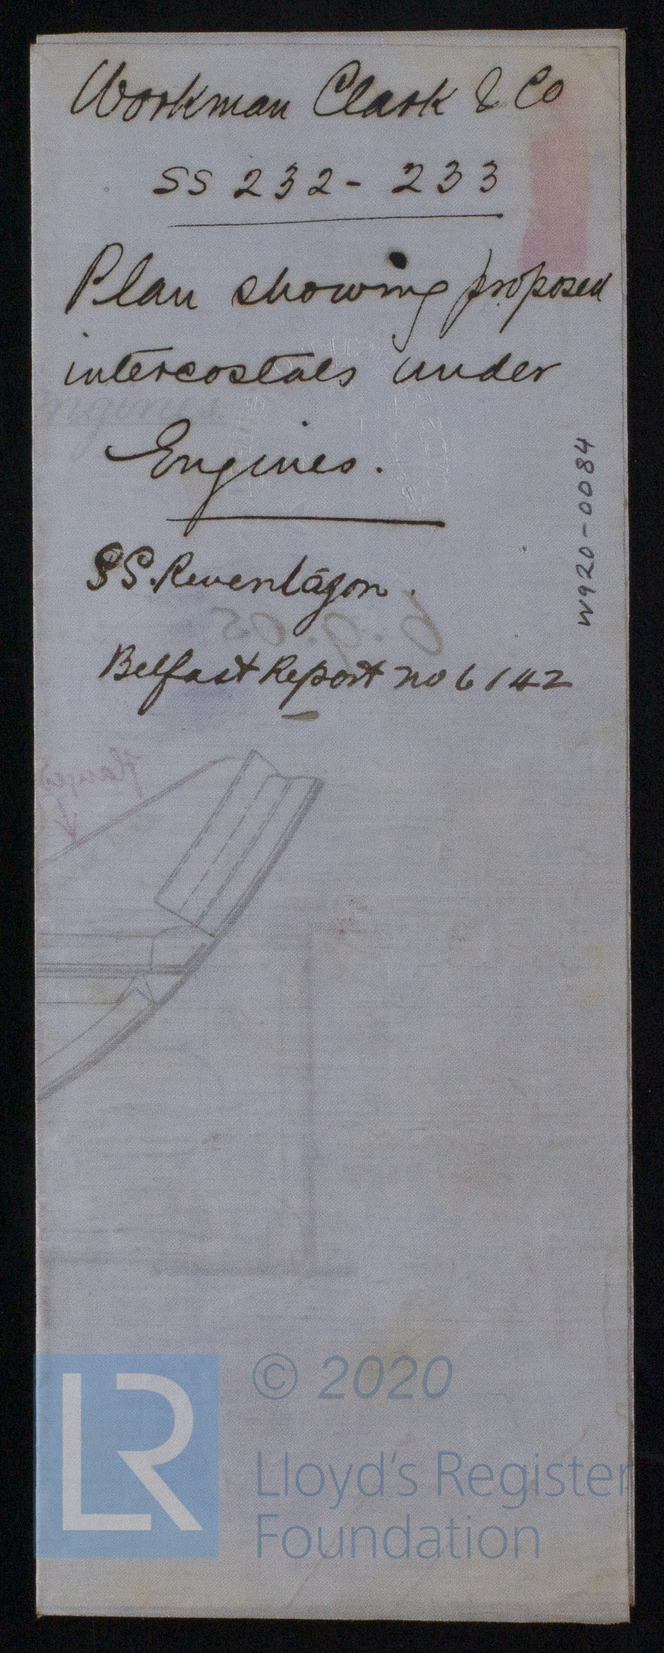 Workman Clark & Co
SS 232 - 233
Plan showing proposed
intercostals under
Engines.
SS. Reventazon.
Belfast Report no 6142
W920-0084
6.9.05
Engines.
flanged
LR
© 2020
Lloyd's Register
Foundation